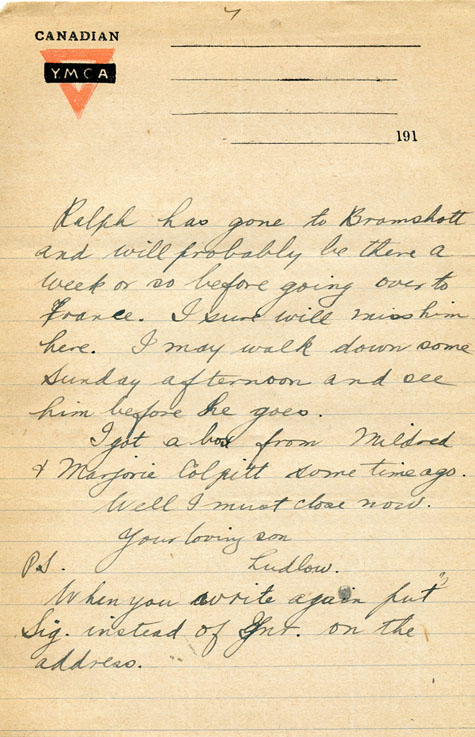 7
CANADIAN
YMCA
191
Ralph has gone to Bramshott
and will probably be there a
week or so before going over to
France. I sure will miss him
here. I may walk down some
Sunday afternoon and see
him before he goes.
I got a box from Mildred
& Marjorie Colpitt some time ago.
Well I must close now.
Your loving son
Ludlow.
P.S.
When you write again put
Sig. instead of Gnr. on the
address.